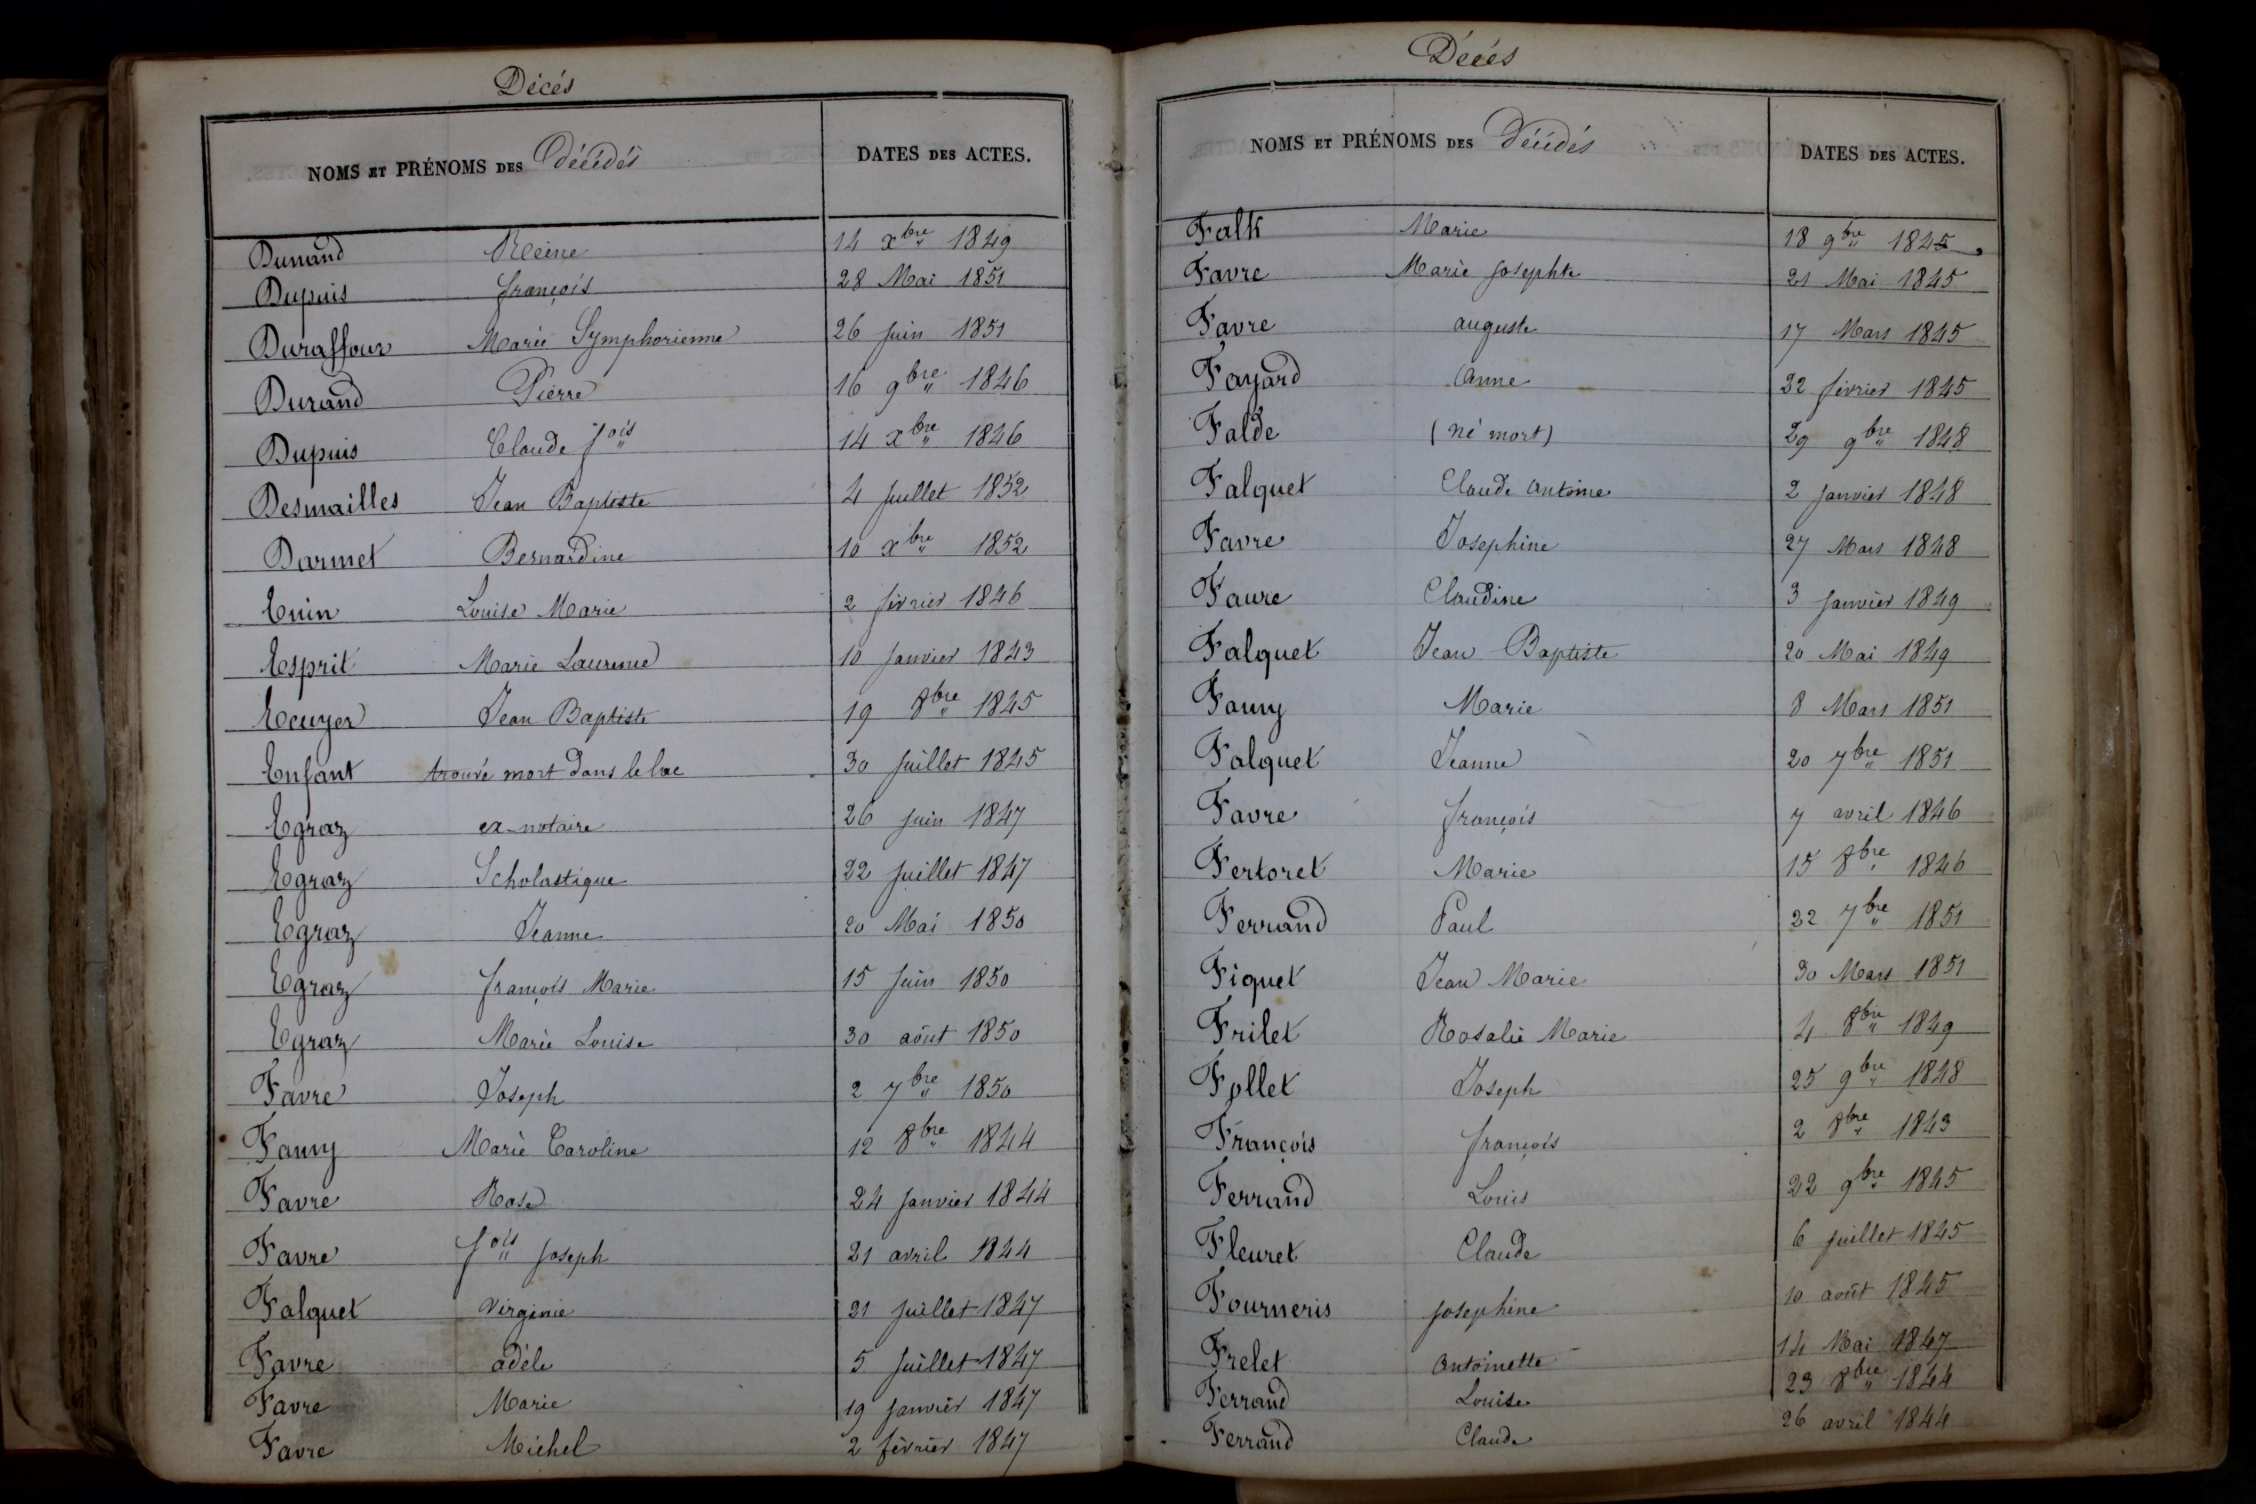 Décés
NOMS ET PRÉNOMS DES Décédés DATES DES ACTES.
Dunand Reine 14 xbre 1849
Dupuis françois 28 Mai 1851
Duraffour Marie Symphorienne 26 juin 1851
Durand Pierre 16 9bre 1846
Dupuis Claude fois 14 xbre 1846
Desmailles Jean Baptiste 4 juillet 1852
Darmet Bernardine 10 xbre 1852
Enin Louise Marie 2 février 1846
Esprit Marie Laurence 10 janvier 1843
Ecuyer Jean Baptiste 19 8bre 1845
Enfant trouvé mort dans le lac 30 juillet 1845
Egraz ex-notaire 26 juin 1847
Egraz Scholastique 22 juillet 1847
Egraz Jeanne 20 Mai 1850
Egraz françois Marie 15 juin 1850
Egraz Marie Louise 30 août 1850
Favre Joseph 2 7bre 1850
Fanny Marie Caroline 12 8bre 1844
Favre Rose 24 janvier 1844
Favre fois joseph 21 avril 1844
Falquet Virginie 21 juillet 1847
Favre adèle 5 juillet 1847
Favre Marie 19 janvier 1847
Favre Michel 2 février 1847
Décés
NOMS ET PRÉNOMS DES Décédés DATES DES ACTES.
Falk Marie 18 9bre 1845
Favre Marie josephte 21 Mai 1845
Favre auguste 17 Mars 1845
Fayard anne 22 février 1845
Falde (né mort) 29 9bre 1848
Falquet Claude antoine 2 janvier 1848
Favre Josephine 27 Mars 1848
Faure Claudine 3 janvier 1849
Falquet Jean Baptiste 20 Mai 1849
Fanny Marie 8 Mars 1851
Falquet Jeanne 20 7bre 1851
Favre françois 7 avril 1846
Fertoret Marie 15 8bre 1846
Ferrand Paul 22 7bre 1851
Fiquet Jean Marie 30 Mars 1851
Frilet Rosalie Marie 4 8bre 1849
Follet Joseph 25 9bre 1848
François françois 2 8bre 1843
Ferrand Louis 22 9bre 1845
Fleuret Claude 6 juillet 1845
Fourneris josephine 10 août 1845
Frelet antoinette 14 Mai 1847
Ferrand Louise 23 8bre 1844
Ferrand Claude 26 avril 1844